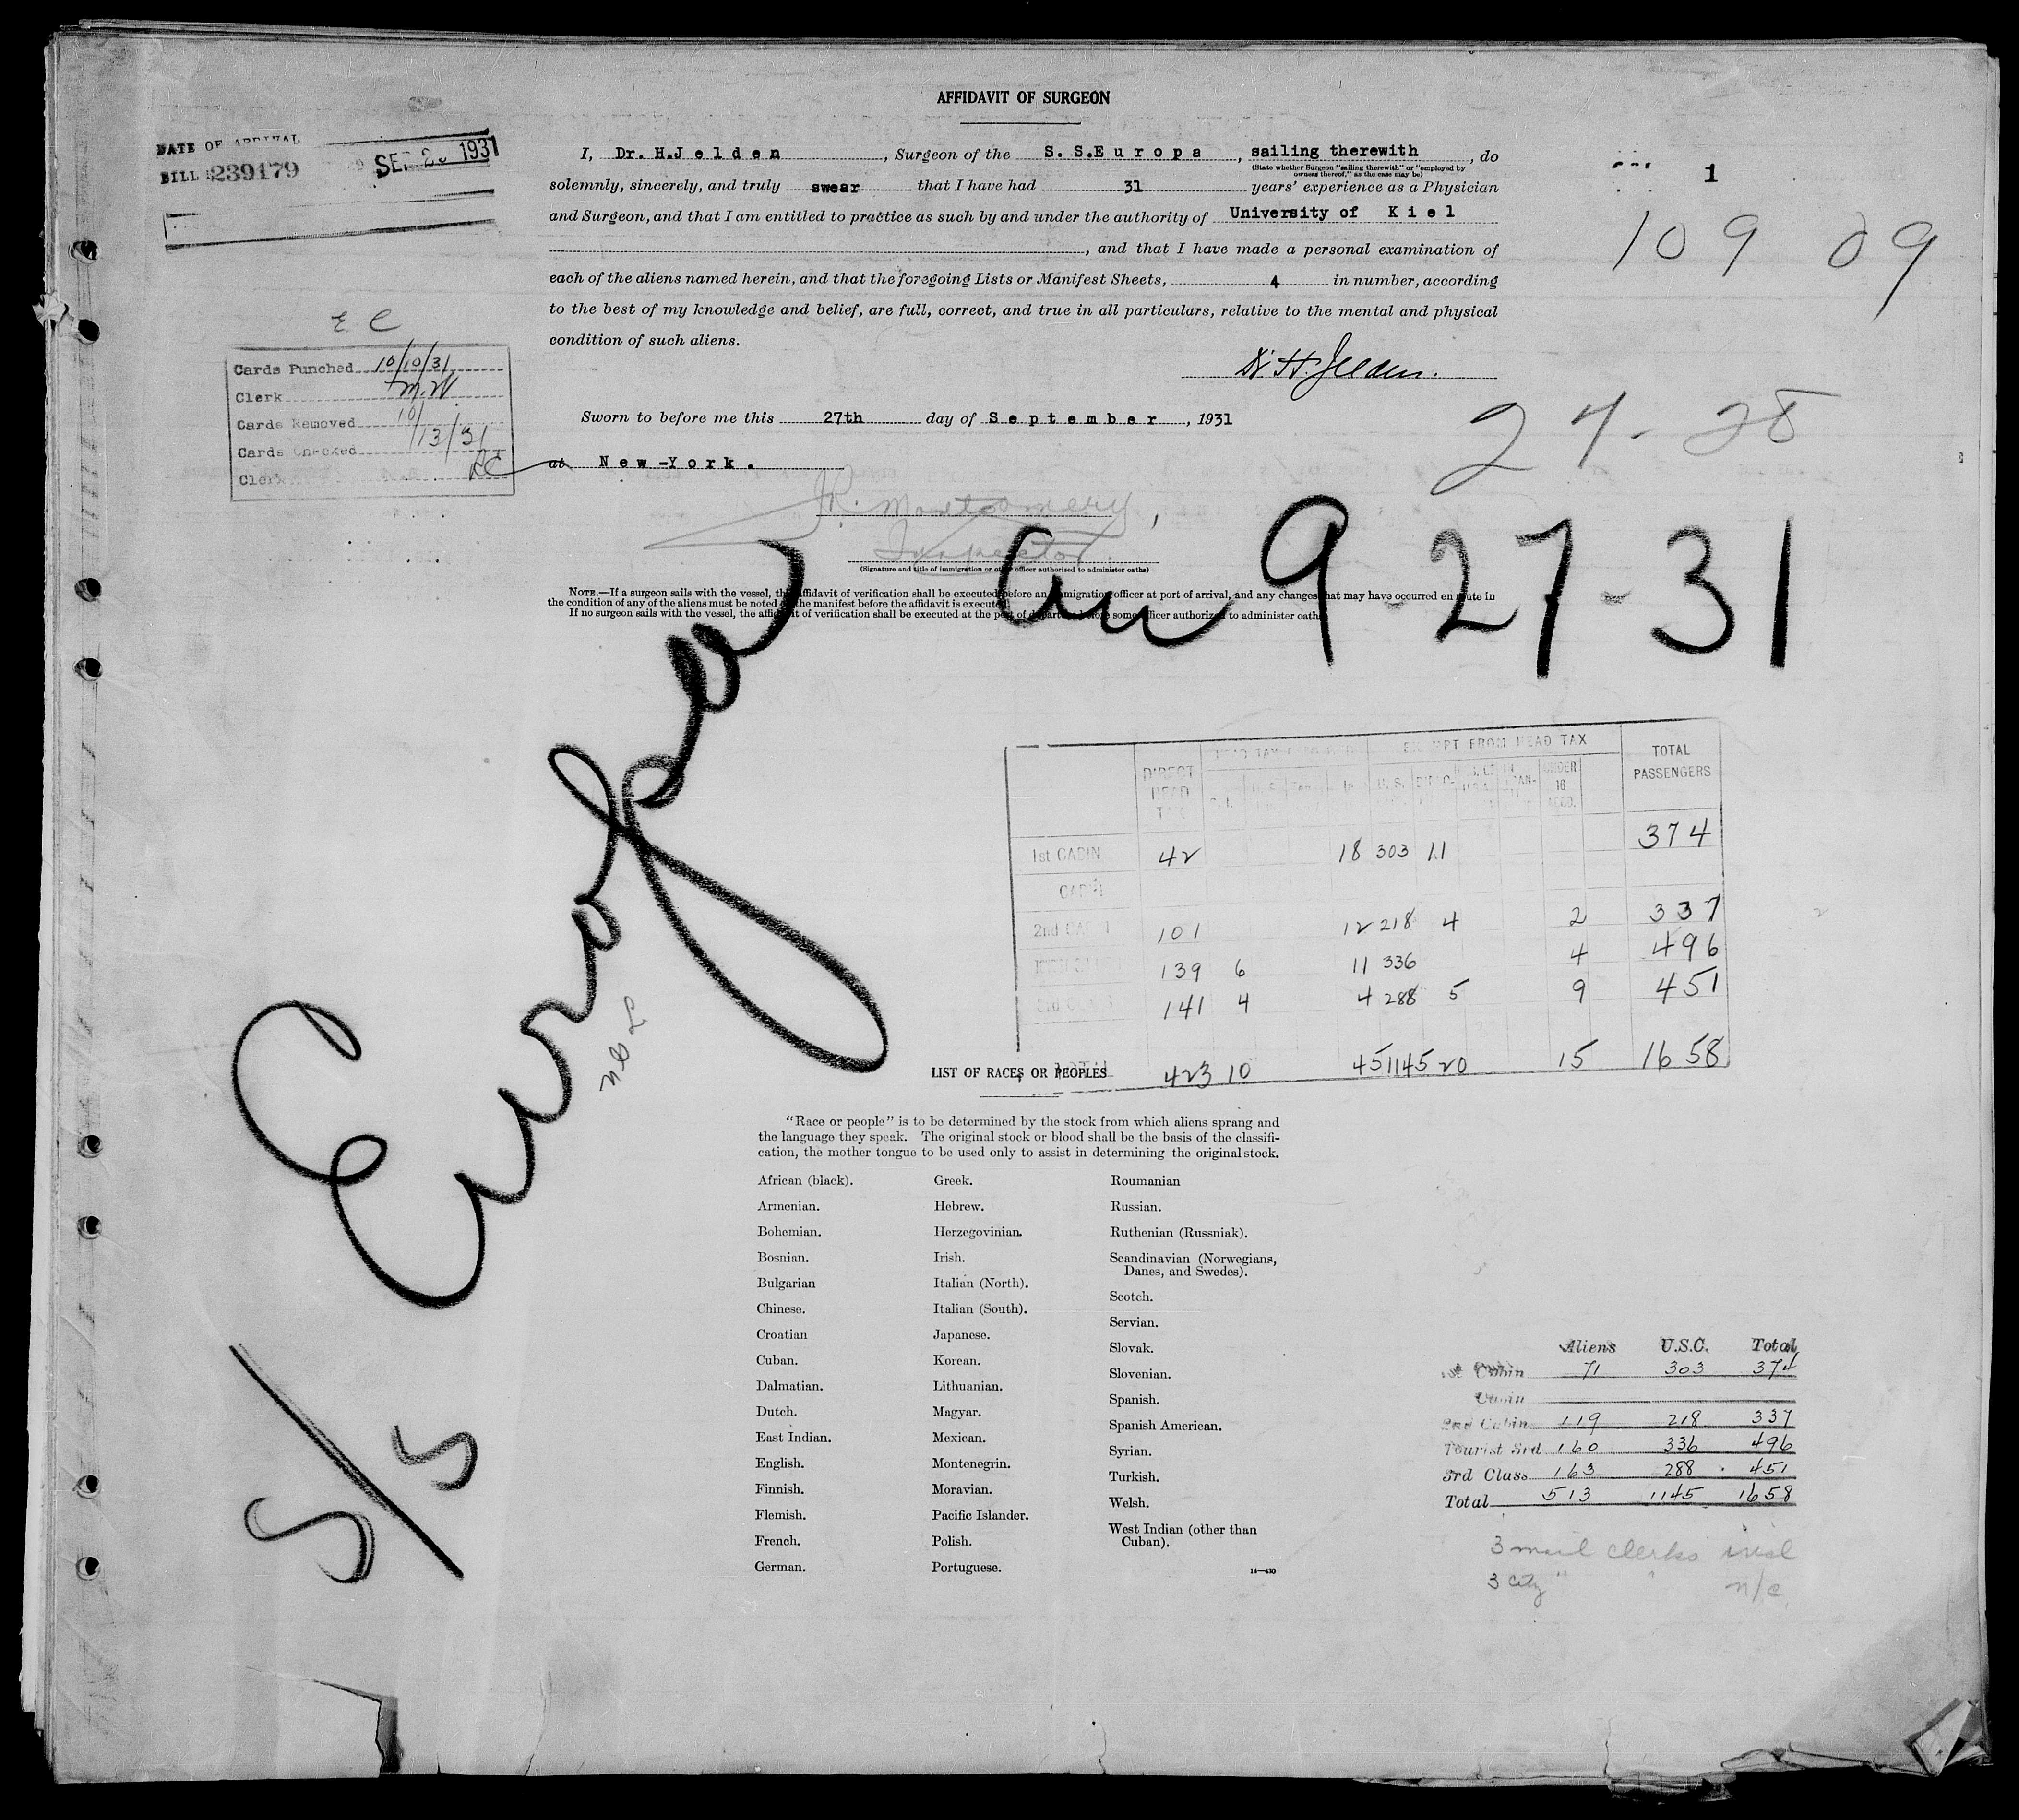 AFFIDAVIT OF SURGEON
DATE OF ARRIVAL
BILL 239179 SEP 1931
I, Dr. H. Jelden, Surgeon of the S.S. Europa, sailing therewith, do
(State whether Surgeon "sailing therewith" or "employed by
owners thereof," as the case may be)
solemnly, sincerely, and truly swear that I have had 31 years' experience as a Physician
and Surgeon, and that I am entitled to practice as such by and under the authority of University of Kiel
, and that I have made a personal examination of
each of the aliens named herein, and that the foregoing Lists or Manifest Sheets, 4 in number, according
to the best of my knowledge and belief, are full, correct, and true in all particulars, relative to the mental and physical
condition of such aliens.
Dr H. Jelden.
Sworn to before me this 27th day of September, 1931
at New-York.
Montgomery
Inspector
(Signature and title of immigration or other officer authorized to administer oaths)
NOTE.—If a surgeon sails with the vessel, the affidavit of verification shall be executed before an immigration officer at port of arrival, and any changes that may have occurred en route in
the condition of any of the aliens must be noted on the manifest before the affidavit is executed.
If no surgeon sails with the vessel, the affidavit of verification shall be executed at the port of departure before some officer authorized to administer oaths.
1
109 09
E C
Cards Punched 10/10/31
Clerk M.W.
Cards Removed 10/13/31
Cards Checked
Clerk
S/S Europa
9-27-31
DIRECT HEAD TAX
EXEMPT FROM HEAD TAX
TOTAL PASSENGERS
UNDER 16 ACCD.
1st CABIN 42 18 303 11 374
CABIN
2nd CABIN 101 12 218 4 2 337
139 6 11 336 4 496
3rd CLASS 141 4 4 288 5 9 451
TOTAL 423 10 45 1145 20 15 1658
LIST OF RACES OR PEOPLES
"Race or people" is to be determined by the stock from which aliens sprang and
the language they speak. The original stock or blood shall be the basis of the classifi-
cation, the mother tongue to be used only to assist in determining the original stock.
African (black).
Armenian.
Bohemian.
Bosnian.
Bulgarian
Chinese.
Croatian
Cuban.
Dalmatian.
Dutch.
East Indian.
English.
Finnish.
Flemish.
French.
German.
Greek.
Hebrew.
Herzegovinian.
Irish.
Italian (North).
Italian (South).
Japanese.
Korean.
Lithuanian.
Magyar.
Mexican.
Montenegrin.
Moravian.
Pacific Islander.
Polish.
Portuguese.
Roumanian
Russian.
Ruthenian (Russniak).
Scandinavian (Norwegians,
Danes, and Swedes).
Scotch.
Servian.
Slovak.
Slovenian.
Spanish.
Spanish American.
Syrian.
Turkish.
Welsh.
West Indian (other than
Cuban).
14—430
Aliens U.S.C. Total
1st Cabin 71 303 374
Cabin
2nd Cabin 119 218 337
Tourist 3rd 160 336 496
3rd Class 163 288 451
Total 513 1145 1658
3 mail clerks incl
3 city " " n/c